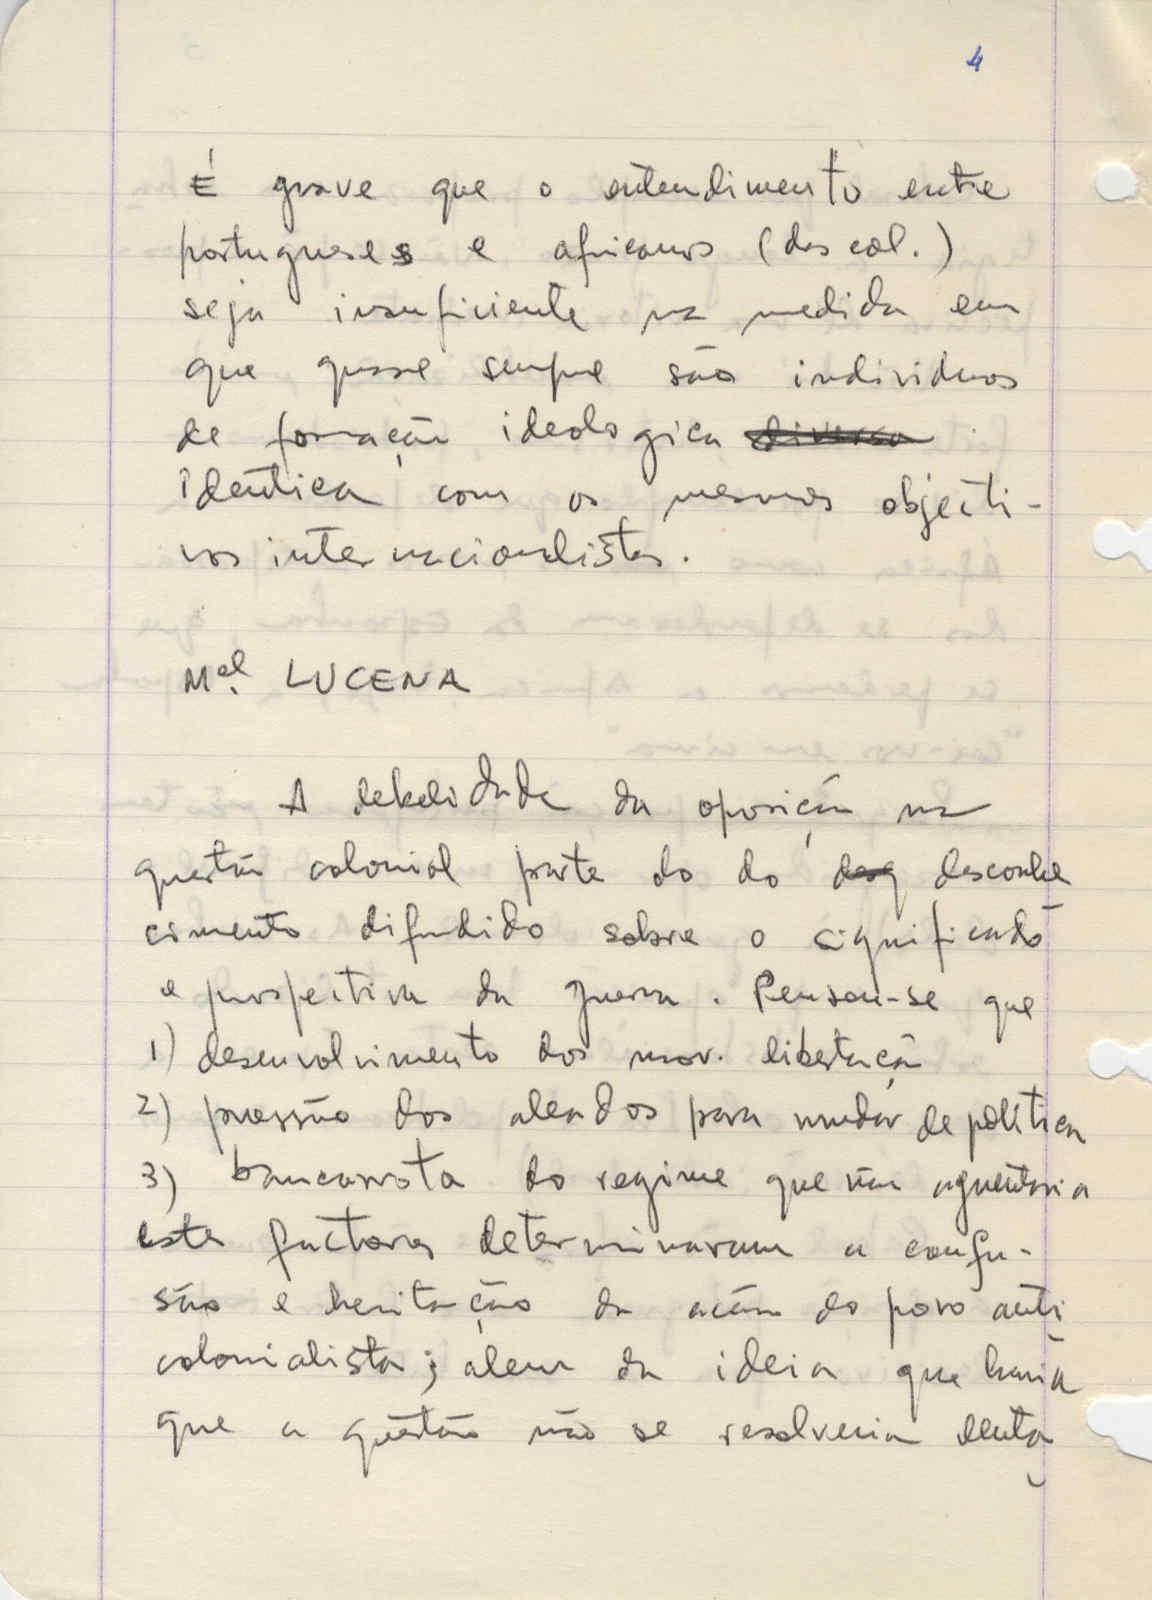 4
É grave que o entendimento entre
portugueses e africanos (das col.)
seja insuficiente na medida em
que quase sempre são individuos
de formação ideologica diversa
identica com os mesmos objecti-
vos internacionalistas.
Mel. LUCENA
A debelidade da oposição na
questão colonial parte do do desq desconhe
cimento difundido sobre o significado
e perspectiva da guerra. Pensou-se que
1) desenvolvimento dos mov. libertação
2) pressão dos aleados para mudar de politica
3) bancarrota do regime que não aguentaria
estes factores determinaram a confu-
são e hesitação da acção do povo anti
colonialista; alem da ideia que havia
que a questão não se resolveria